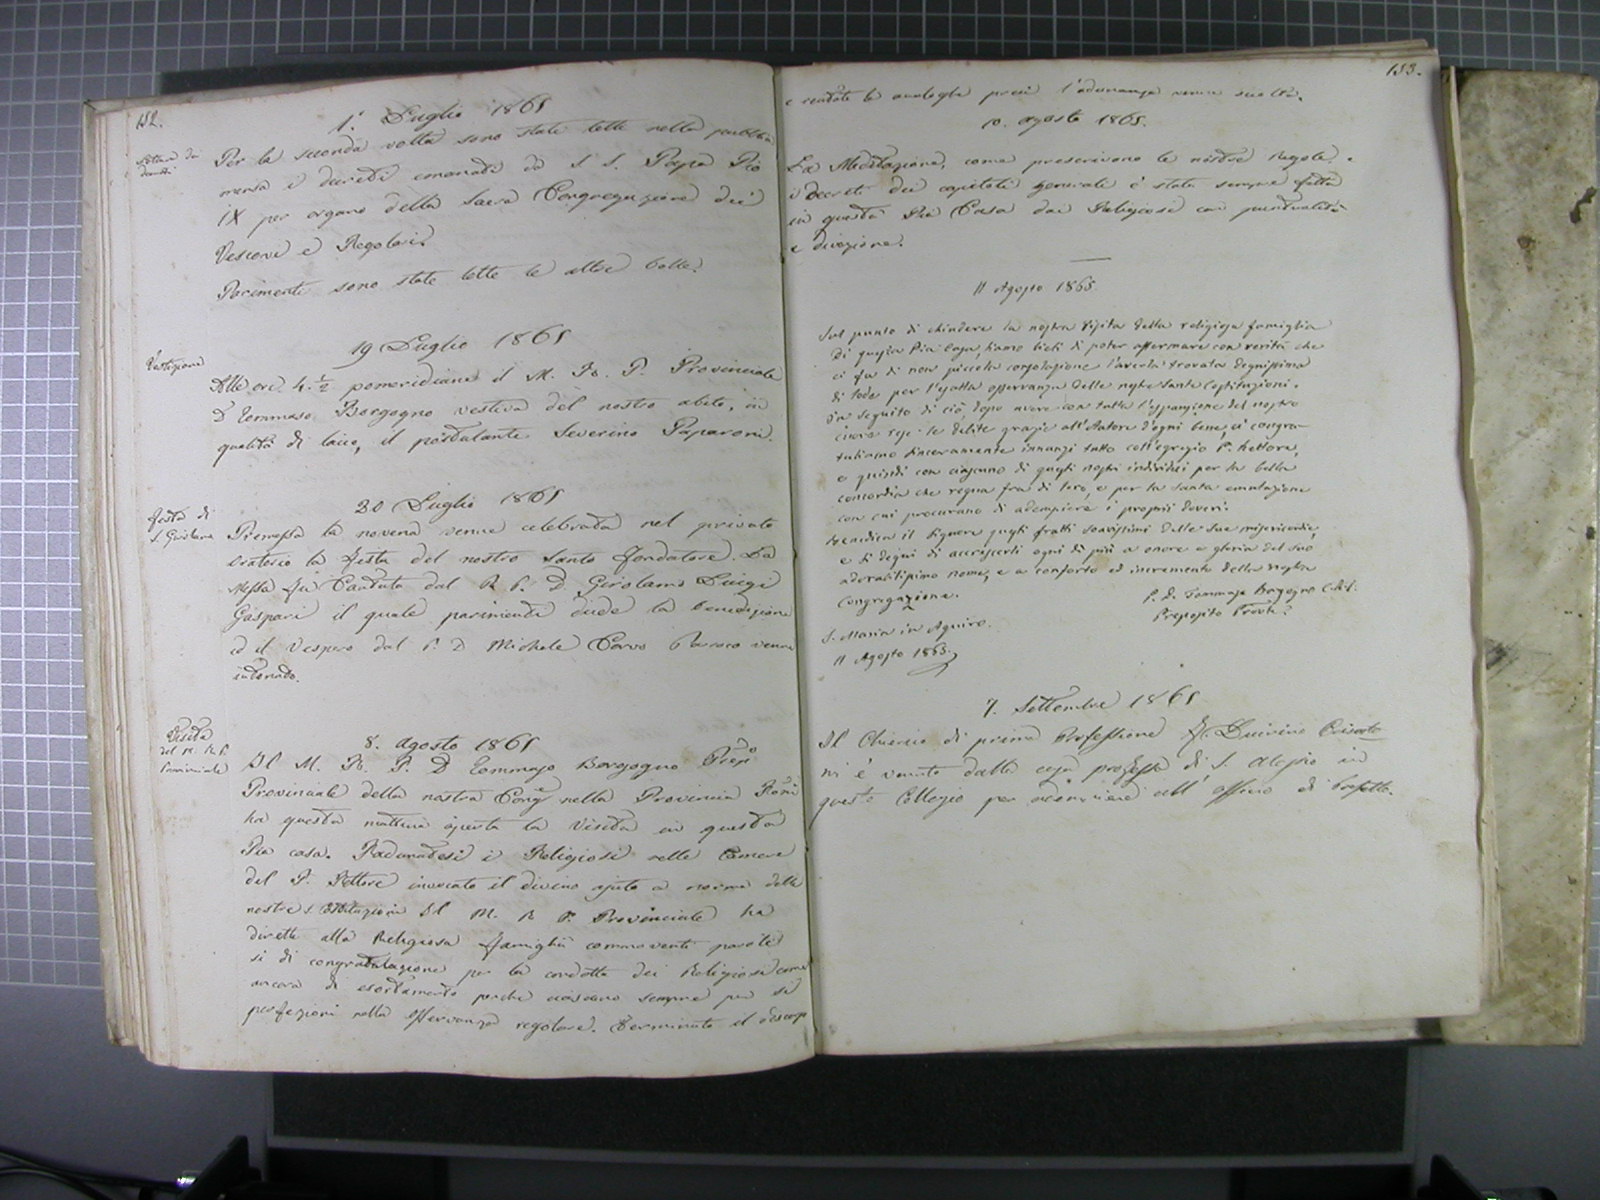 152.
1.° Luglio 1865
Lettura dei
decreti
Per la seconda volta sono stati letti nella pubblica
mensa i decreti emanati da S. S. Papa Pio
IX per organo della Sacra Congregazione dei
Vescovi e Regolari.
Parimenti sono state lette le altre bolle.
19 Luglio 1865
Vestizione
Alle ore 4 ½ pomeridiane il M. R. P. Provinciale
D. Tommaso Borgogno vestiva del nostro abito, in
qualità di laico, il postulante Severino Paparoni.
20 Luglio 1865
Festa di
S. Girolamo
Premessa la novena venne celebrata nel privato
oratorio la festa del nostro Santo fondatore. La
Messa fu cantata dal R. P. D. Girolamo Luigi
Gaspari il quale parimenti diede la benedizione
ed il Vespero dal P. D. Michele Corvo Parroco venne
intonato.
Visita
del M. R. P.
Provinciale
8. agosto 1865
Il M. R. P. D Tommaso Borgogno Prep.°
Provinciale della nostra Cong.e nella Provincia Rom.a
ha questa mattina aperta la Visita in questa
Pia casa. Radunatesi i Religiosi nelle Camere
del P. Rettore invocato il divino ajuto a norma delle
nostre s. Costituzioni Il M. R. P. Provinciale ha
dirette alla Religiosa famiglia commoventi parole
sì di congratulazione per la condotta dei Religiosi come
ancora di esortamento perché ciascuno sempre più si
perfezioni nella osservanza regolare. Terminato il discorso
153.
e recitate le analoghe preci l'adunanza venne sciolta.
10. agosto 1865.
La Meditazione, come prescrivono le nostre Regole, e
i Decreti dei capitoli generali è stata sempre fatta
in questa Pia Casa dai Religiosi con puntualità
e divozione.
11 Agosto 1865.
Sul punto di chiudere la nostra Visita della religiosa famiglia
di questa Pia Casa, siamo lieti di poter affermare con verità che
ci fu di non piccola consolazione l'averla trovata degnissima
di lode per l'esatta osservanza delle nostre sante Costituzioni.
In seguito di ciò, dopo avere con tutta l'espansione del nostro
cuore rese le debite grazie all'Autore d'ogni bene, ci congra-
tuliamo sinceramente innanzi tutto coll'egregio P. Rettore,
e quindi con ciascuno di questi nostri individui per la bella
concordia che regna fra di loro, e per la santa emulazione
con cui procurano di adempiere i proprii doveri.
Benedica il Signore questi frutti soavissimi delle sue misericordie,
e si degni di accrescerli ogni dì più a onore e gloria del suo
adorabilissimo nome, e a conforto ed incremento della nostra
Congregazione.
P. D. Tommaso Borgogno C.R.S.
Preposito Prov.le
S. Maria in Aquiro.
11 Agosto 1865.
7. Settembre 1865
Il Chierico di prima Professione D. Quirino
ni è venuto dalla casa professa di S. Alessio in
questo Collegio per adempiere all'officio di Prefetto.